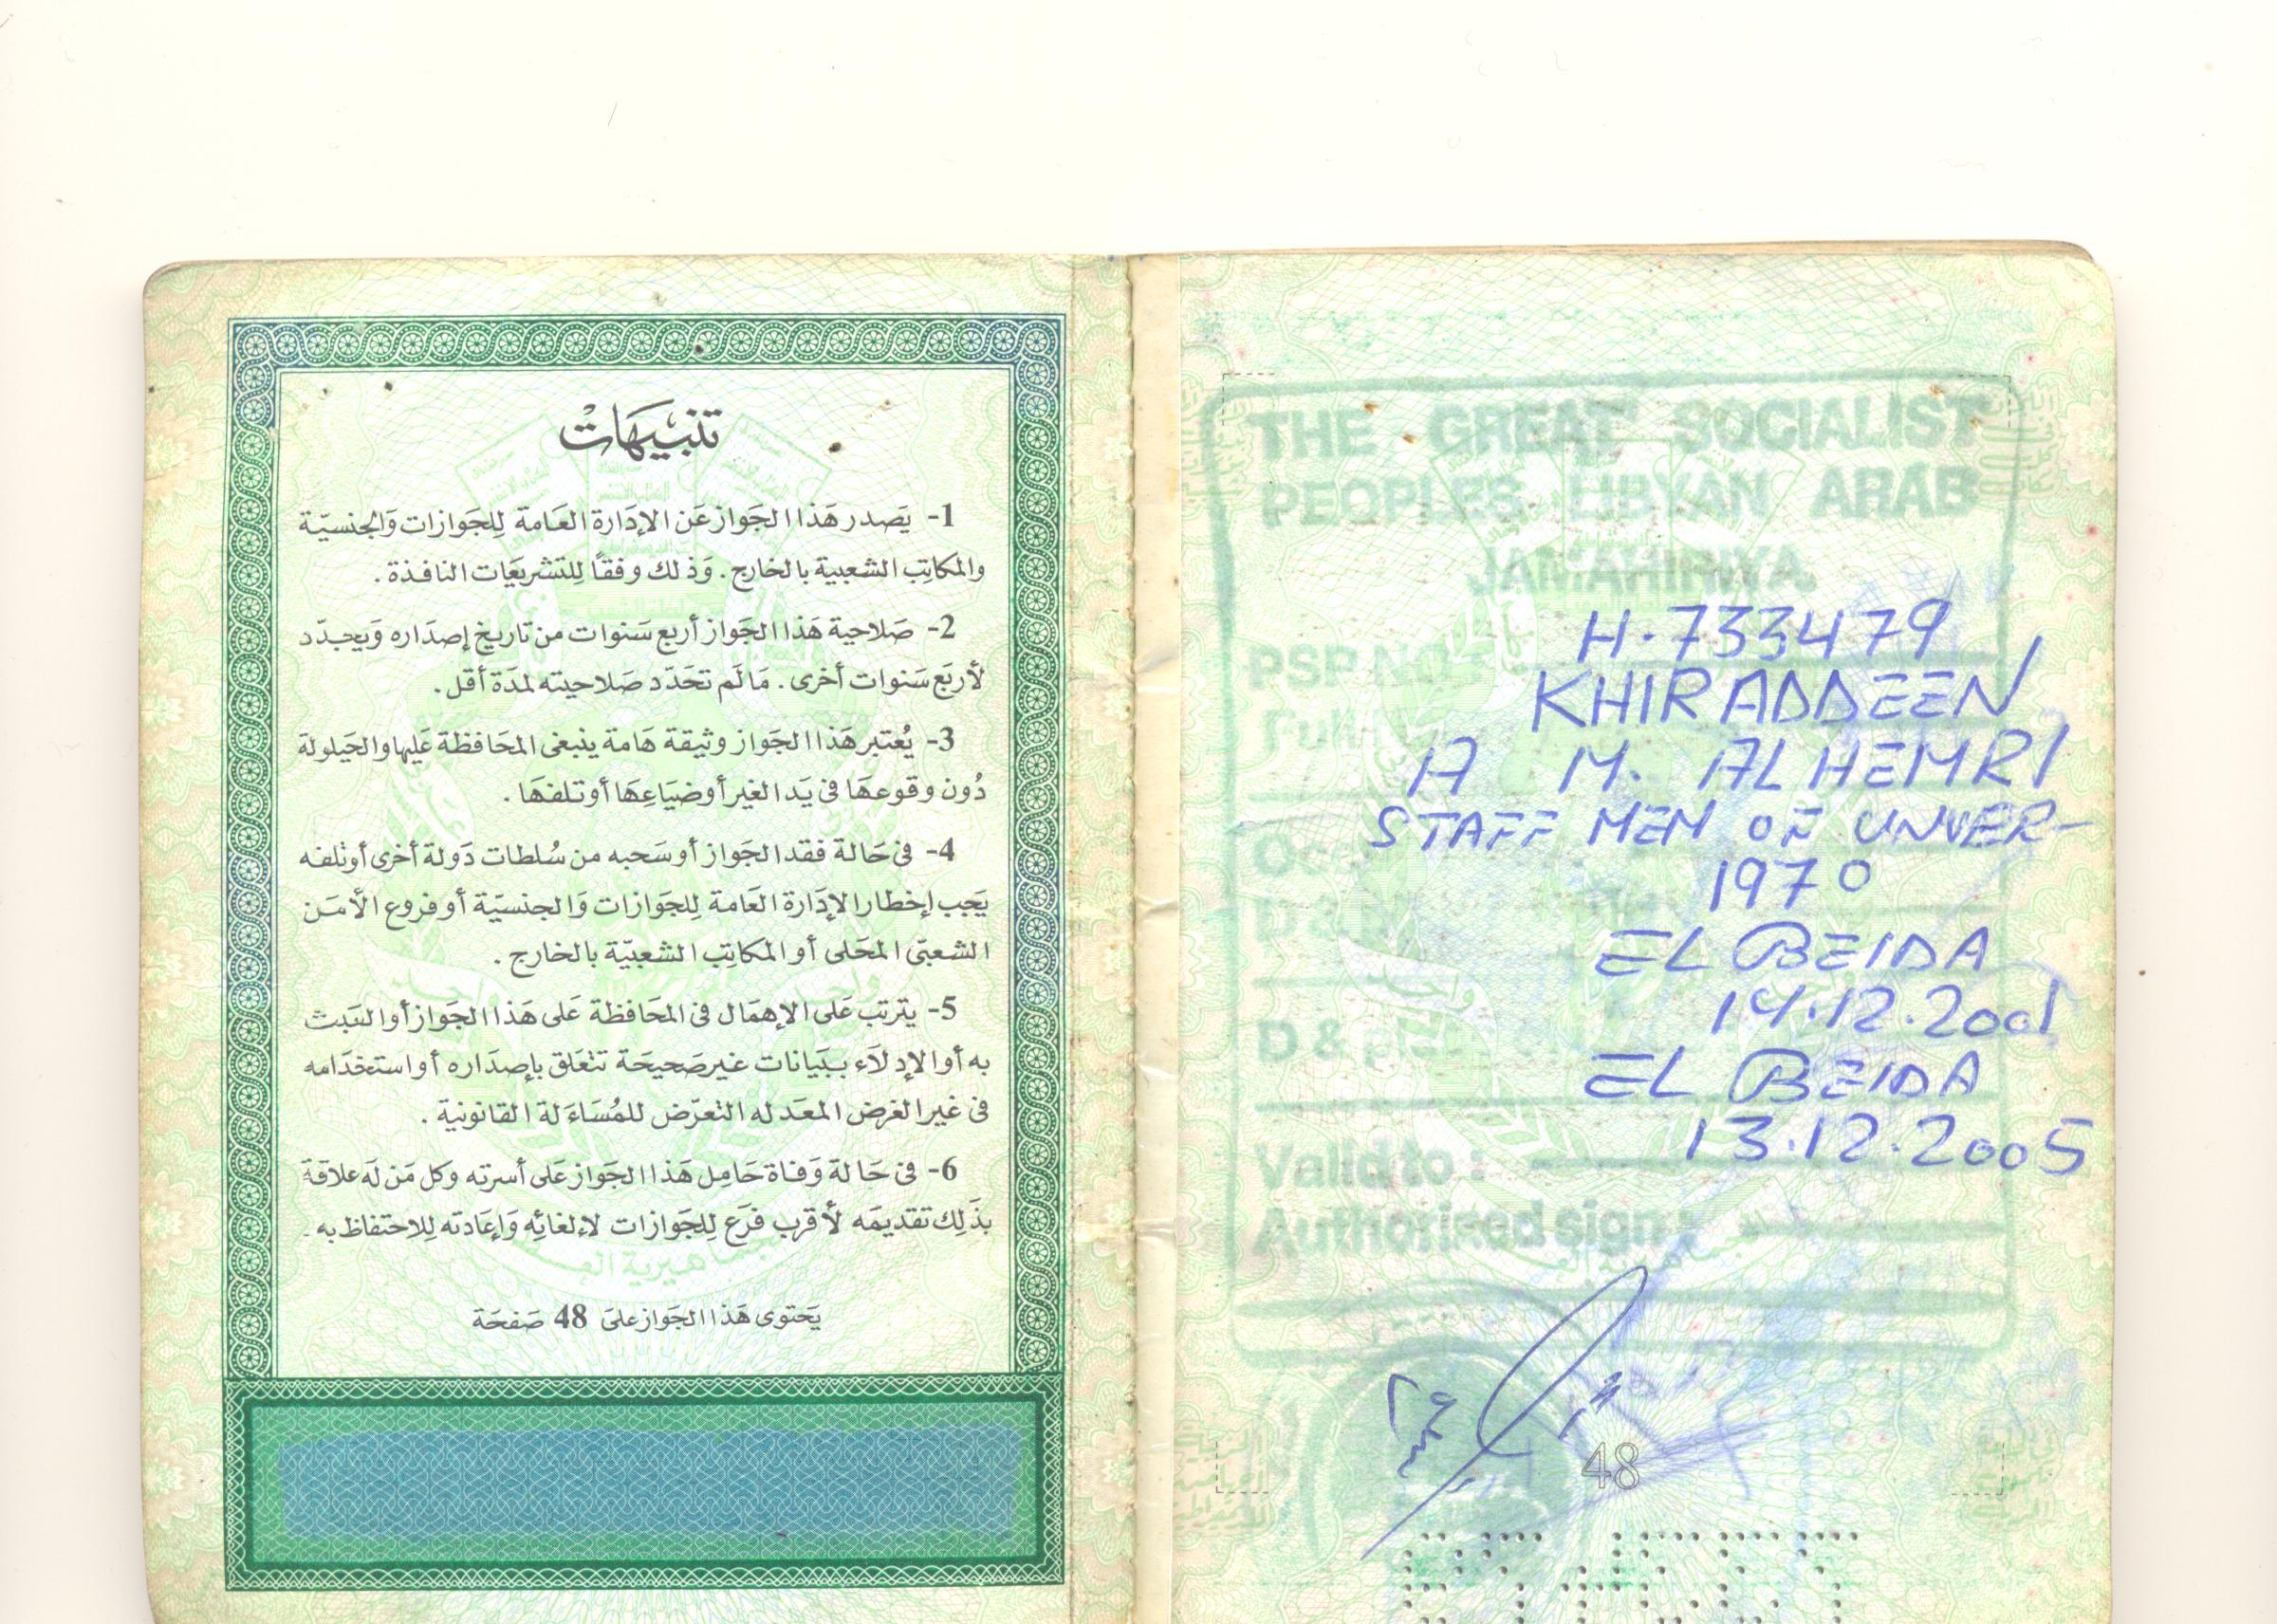 تنبيهات
1- يصدر هذا الجواز عن الإدارة العامة للجوازات والجنسية
والمكاتب الشعبية بالخارج . وذلك وفقاً للتشريعات النافذة .
2- صلاحية هذا الجواز أربع سنوات من تاريخ إصداره ويجدّد
لأربع سنوات أخرى . ما لم تحدّد صلاحيته لمدة أقل .
3- يُعتبر هذا الجواز وثيقة هامة ينبغى المحافظة عليها والحيلولة
دُون وقوعها فى يد الغير أو ضياعها أو تلفها .
4- فى حالة فقد الجواز أو سحبه من سُلطات دولة أخرى أو تلفه
يجب إخطار الإدارة العامة للجوازات والجنسيّة أو فروع الأمن
الشعبى المحلى أو المكاتب الشعبيّة بالخارج .
5- يترتب على الإهمال فى المحافظة على هذا الجواز أو العبث
به أو الإدلاء ببيانات غير صحيحة تتعلق بإصداره أو استخدامه
فى غير الغرض المعد له التعرّض للمُساءلة القانونية .
6- فى حالة وفاة حامل هذا الجواز على أسرته وكل من له علاقة
بذلك تقديمه لأقرب فرع للجوازات لإلغائه وإعادته للاحتفاظ به .
يحتوى هذا الجواز على 48 صفحة
THE GREAT SOCIALIST
PEOPLES LIBYAN ARAB
JAMAHIRIYA
PSP.NO: H.733479
Full KHIRADDEEN
A M. ALHEMRI
STAFF MEM OF UNVER-
1970
EL BEIDA
14.12.2001
D & EL BEIDA
Valid to : 13.12.2005
Authorised sign :
48